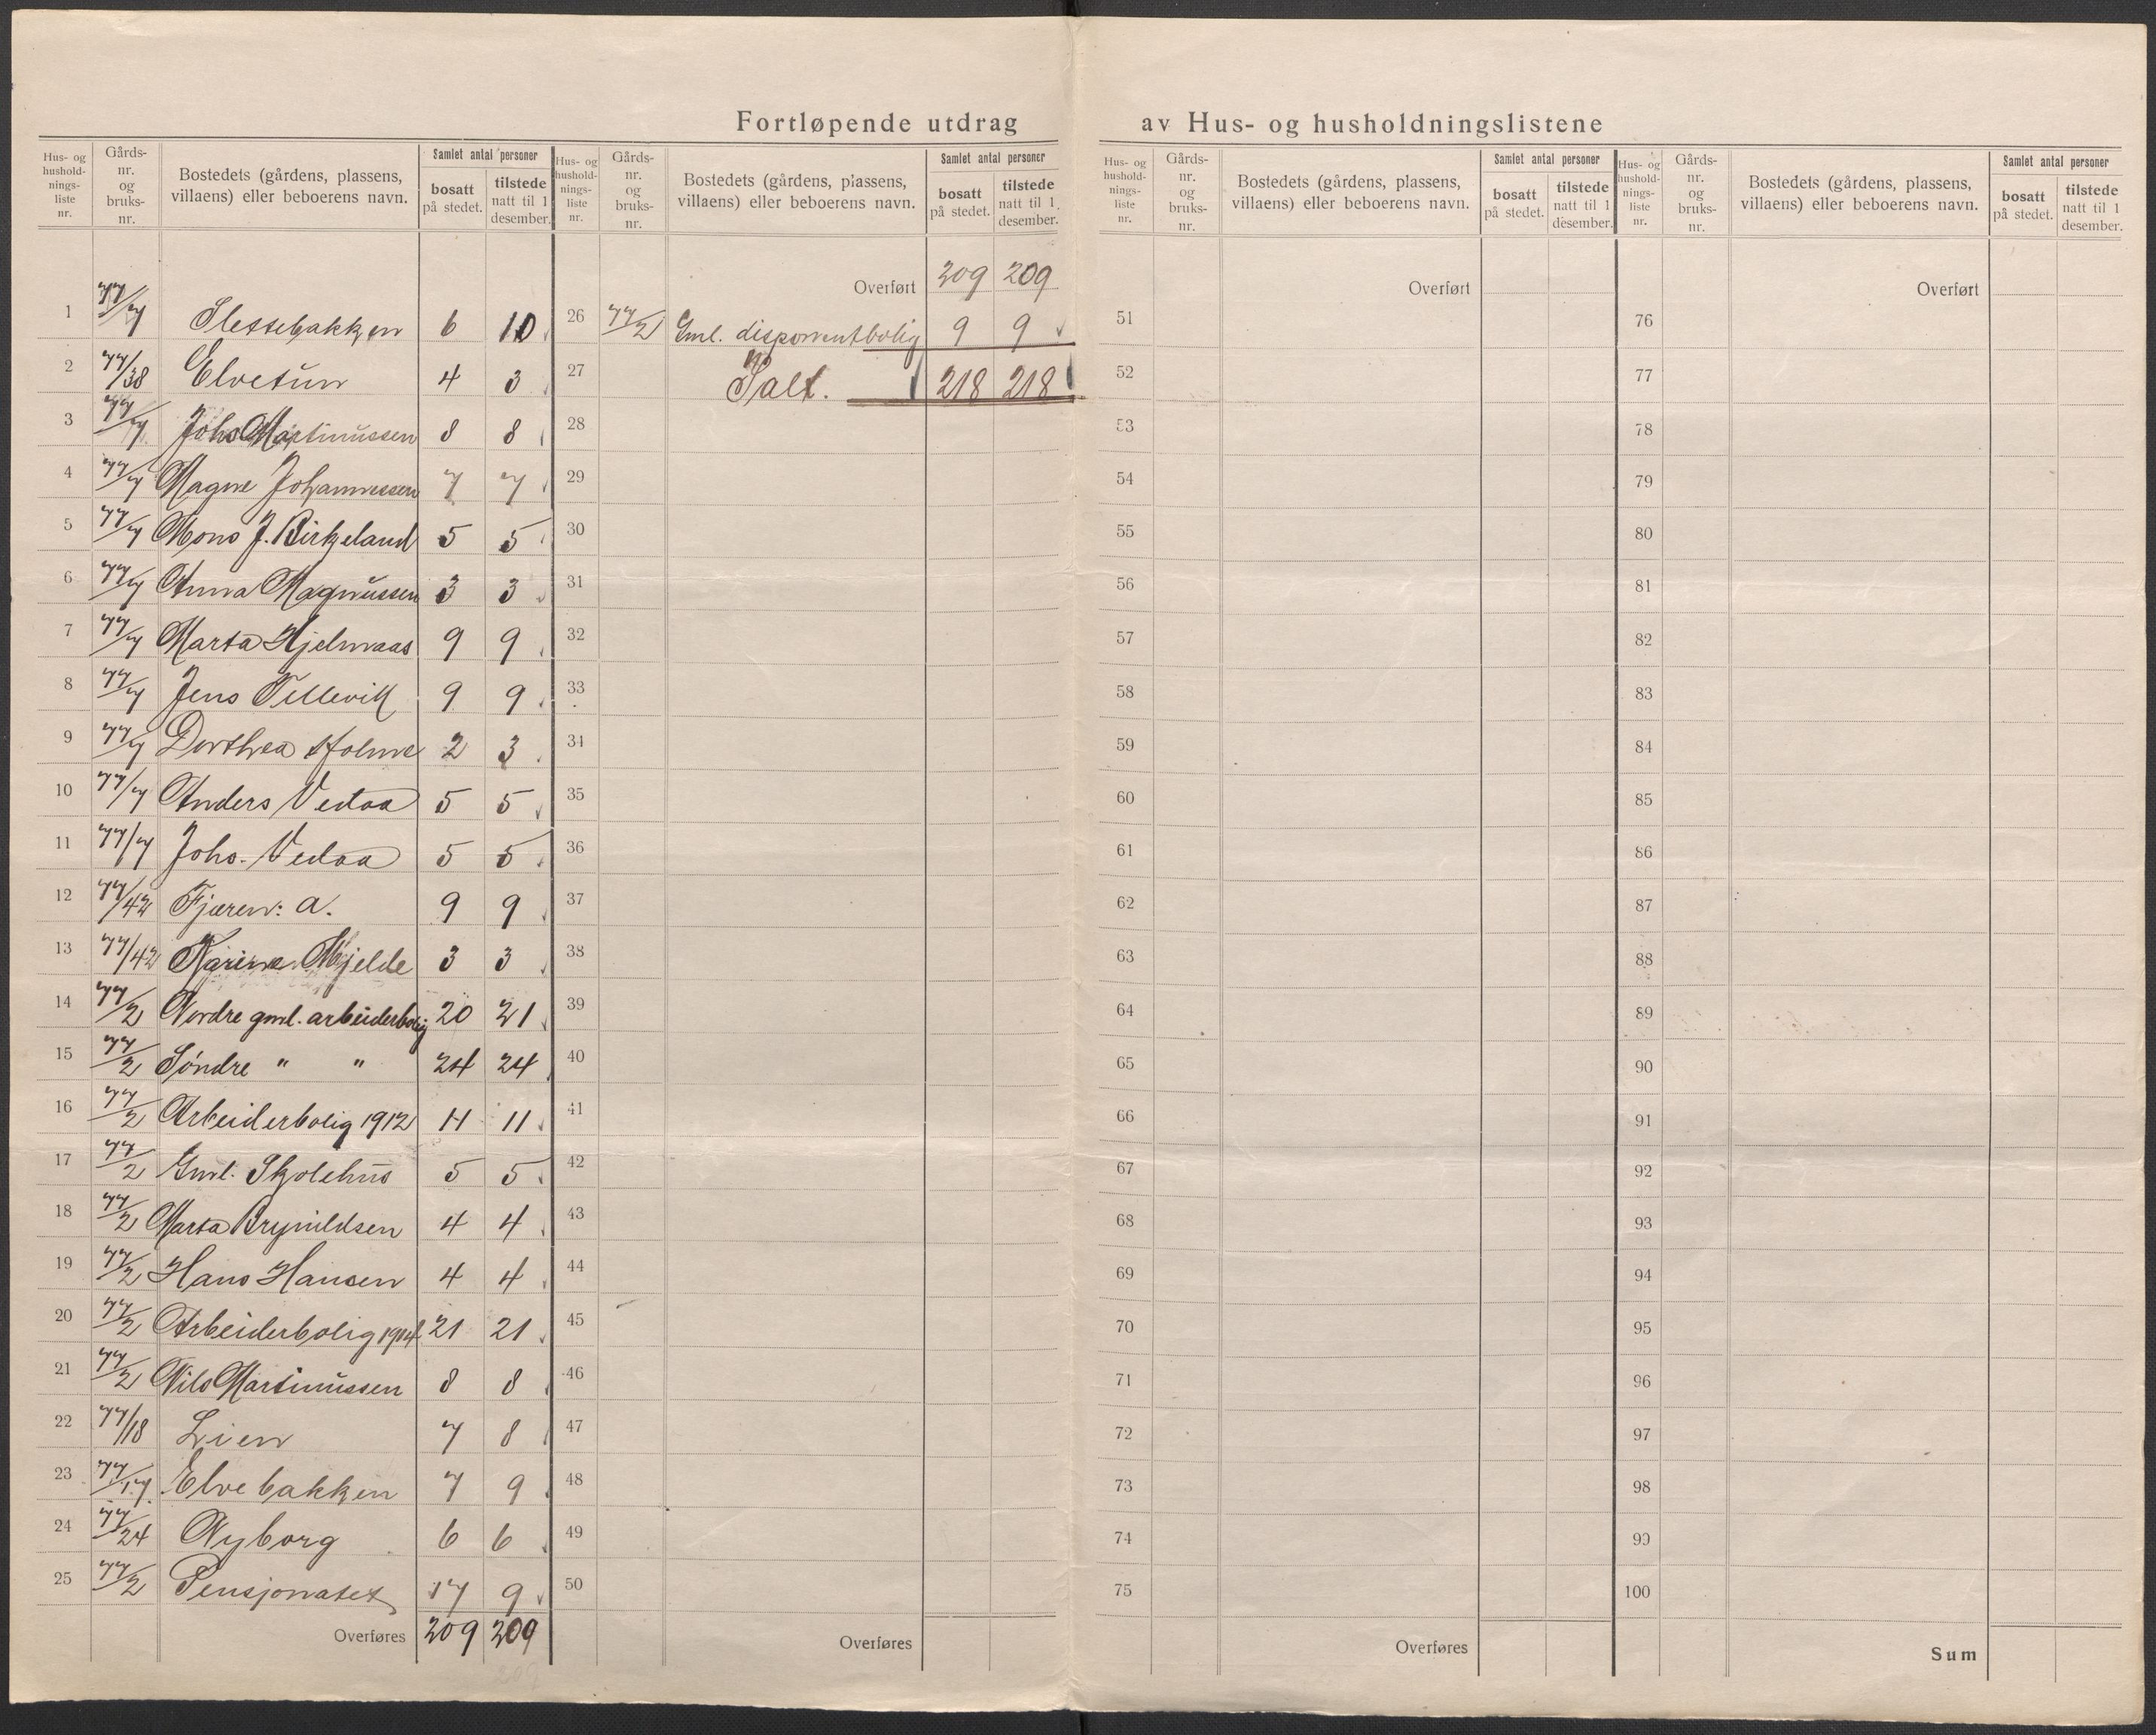 Fortløpende utdrag av Hus- og husholdningslistene
Hus- og husholdnings-liste nr. Gårds-nr. og bruks-nr. Bostedets (gårdens, plassens, villaens) eller beboerens navn. Samlet antal personer bosatt på stedet. tilstede natt til 1 desember.
1 77/7 Slettebakken 6 10
2 77/38 Elvetun 4 3
3 77/7 Johs Martinussen 8 8
4 77/7 Magne Johannessen 7 7
5 77/7 Mons J. Birkeland 5 5
6 77/7 Anna Magnussen 3 3
7 77/7 Marta Hjelmaas 9 9
8 77/7 Jens Tellevik 9 9
9 77/7 Dorthea Holme 2 3
10 77/7 Anders Vedaa 5 5
11 77/7 Johs. Vedaa 5 5
12 77/42 Fjæren: a. 9 9
13 77/42 Karine Mjelde 3 3
14 77/2 Nordre gml. arbeiderbolig 20 21
15 77/2 Søndre " " 24 24
16 77/2 Arbeiderbolig 1912 11 11
17 77/2 Gml. Skolehus 5 5
18 77/2 Marta Brynildsen 4 4
19 77/2 Hans Hansen 4 4
20 77/2 Arbeiderbolig 1914 21 21
21 77/2 Nils Martinussen 8 8
22 77/18 Lien 7 8
23 77/17 Elvebakken 7 9
24 77/24 Nyborg 6 6
25 77/2 Pensjonatet 17 9
Overføres 209 209
209
Hus- og husholdnings-liste nr. Gårds-nr. og bruks-nr. Bostedets (gårdens, plassens, villaens) eller beboerens navn. Samlet antal personer bosatt på stedet. tilstede natt til 1 desember.
Overført 209 209
26 77/2 Gml. disponentbolig 9 9
27 Ialt. 218 218
28
29
30
31
32
33
34
35
36
37
38
39
40
41
42
43
44
45
46
47
48
49
50
Overføres
Hus- og husholdnings-liste nr. Gårds-nr. og bruks-nr. Bostedets (gårdens, plassens, villaens) eller beboerens navn. Samlet antal personer bosatt på stedet. tilstede natt til 1 desember.
Overført
51
52
53
54
55
56
57
58
59
60
61
62
63
64
65
66
67
68
69
70
71
72
73
74
75
Overføres
Hus- og husholdnings-liste nr. Gårds-nr. og bruks-nr. Bostedets (gårdens, plassens, villaens) eller beboerens navn. Samlet antal personer bosatt på stedet. tilstede natt til 1 desember.
Overført
76
77
78
79
80
81
82
83
84
85
86
87
88
89
90
91
92
93
94
95
96
97
98
99
100
Sum